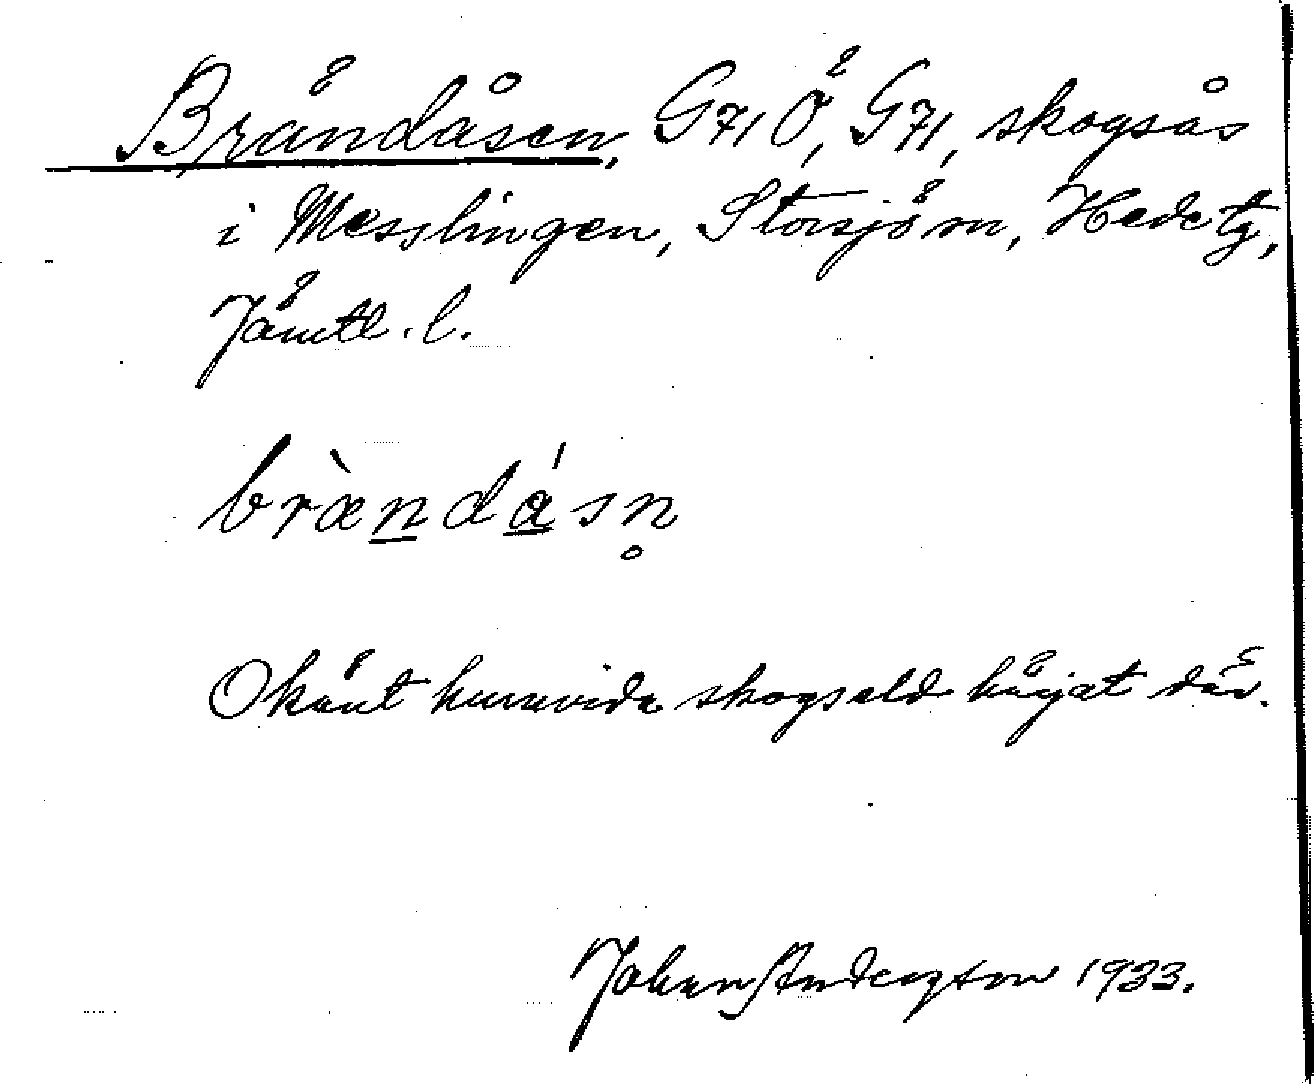 Brändåsen, G71Ö, G71, skogsås
i Messlingen, Storsjö sn, Hede tg,
Jämtl. l.
bræ̀ndásn̥
Okänt huruvida skogseld härjat där.
Johan Anderzson 1933.